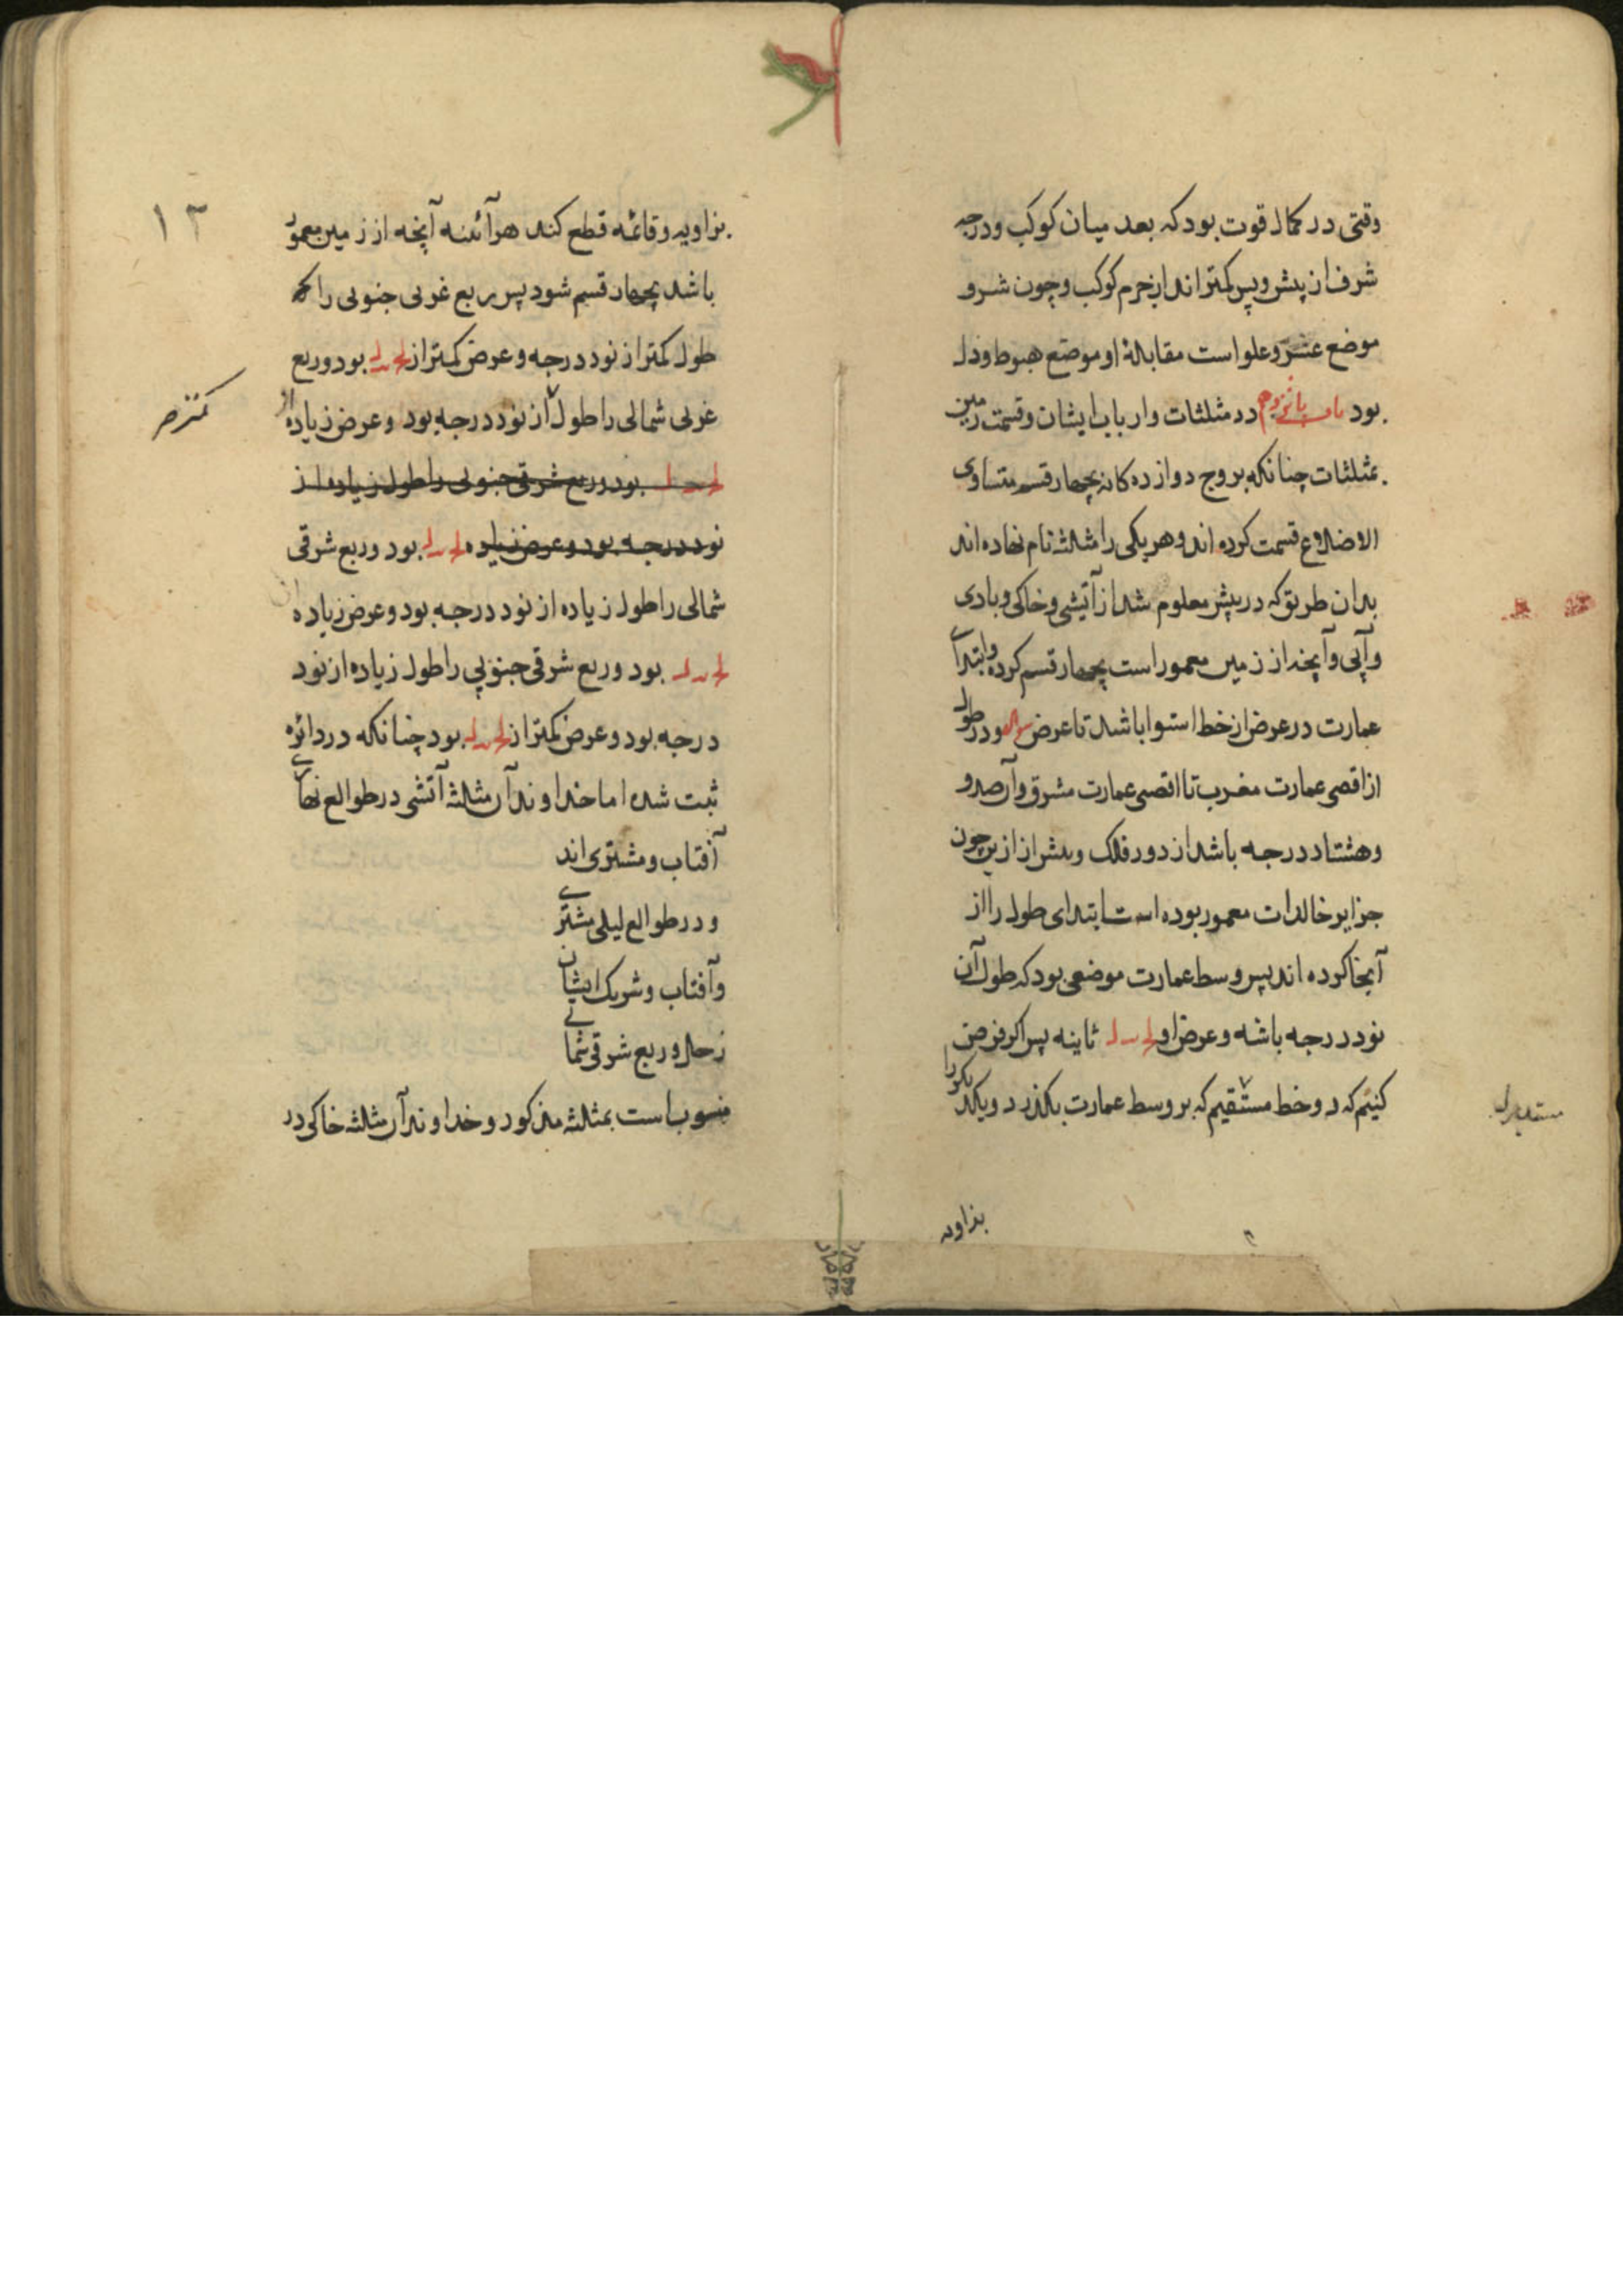 وقتی در کمال قوت بود که بعد میان کوکب و درجه
شرف از پیش و پس کمتر اند از جرم کوکب و چون شرف
موضع عز و علو است مقابلهٔ او موضع هبوط و ذل
بود باب پانزدهم در مثلثات و ارباب ایشان و قسمت زمین
بمثلثات چنانکه بروج دوازده کانه بچهار قسم متساوی
الاضلاع قسمت کرده اند و هر یکی را مثلثه نام نهاده اند
بدان طریق که در پیش معلوم شد از آتیشی و خاکی و بادی
و آبی و آنچه از زمین معمور است بچهار قسم کرده وابتدآی
عمارت در عرض از خط استوا باشد تا عرض و در طول
از اقصی عمارت مغرب تا اقصی عمارت مشرق و آن صد و
و هشتاد درجه باشد از دور فلک و پیش از ازین چون
جزایر خالدات معمور بوده است ابتدای طول را از
آنجا کرده اند پس وسط عمارت موضعی بود که طول آن
نود درجه باشه و عرض او ثاینه پس اکر فرض
کنیم که دو خط مستقیم که بر وسط عمارت بکذرد و یکدیکر را
مستدیر
بزاویه
۱۳
بزاویه و قائمه قطع کند هرآئنه آنچه از زمین معمور
باشد بچهار قسم شود پس ربع غربی جنوبی را که
طول کمتر از نود درجه و عرض کمتر از لح لد بود و ربع
غربی شمالی را طول از نود درجه بود و عرض زیاده از
کمتر
لح لد بود و ربع شرقی جنوبی را طول زیاده از
نود درجه بود و عرض زیاده لح لد بود و ربع شرقی
شمالی را طول زیاده از نود درجه بود و عرض زیاده از
لح لد بود و ربع شرقی جنوبی را طول زیاده از نود
درجه بود و عرض کمتر از لح لد بود چنانکه در دائره
ثبت شده اما خداوندآن مثلثه آتشی در طوالع نهاری
آفتاب و مشتری اند
و در طوالع لیلی مشتری
و آفتاب و شریک ایشان
زحل و ربع شرقی شمالی
منسوب است بمثلثه مذکور و خداوندآن مثلثه خاکی در